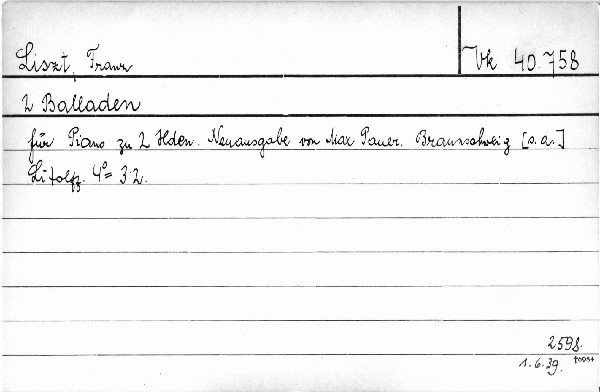 Liszt, Franz
Vk 40.758
2 Balladen
für Piano zu 2 Hden. Neuausgabe von Max Pauer. Braunschweig [s.a.]
Litolff. 4°= 32.
2598.
1.6.39.